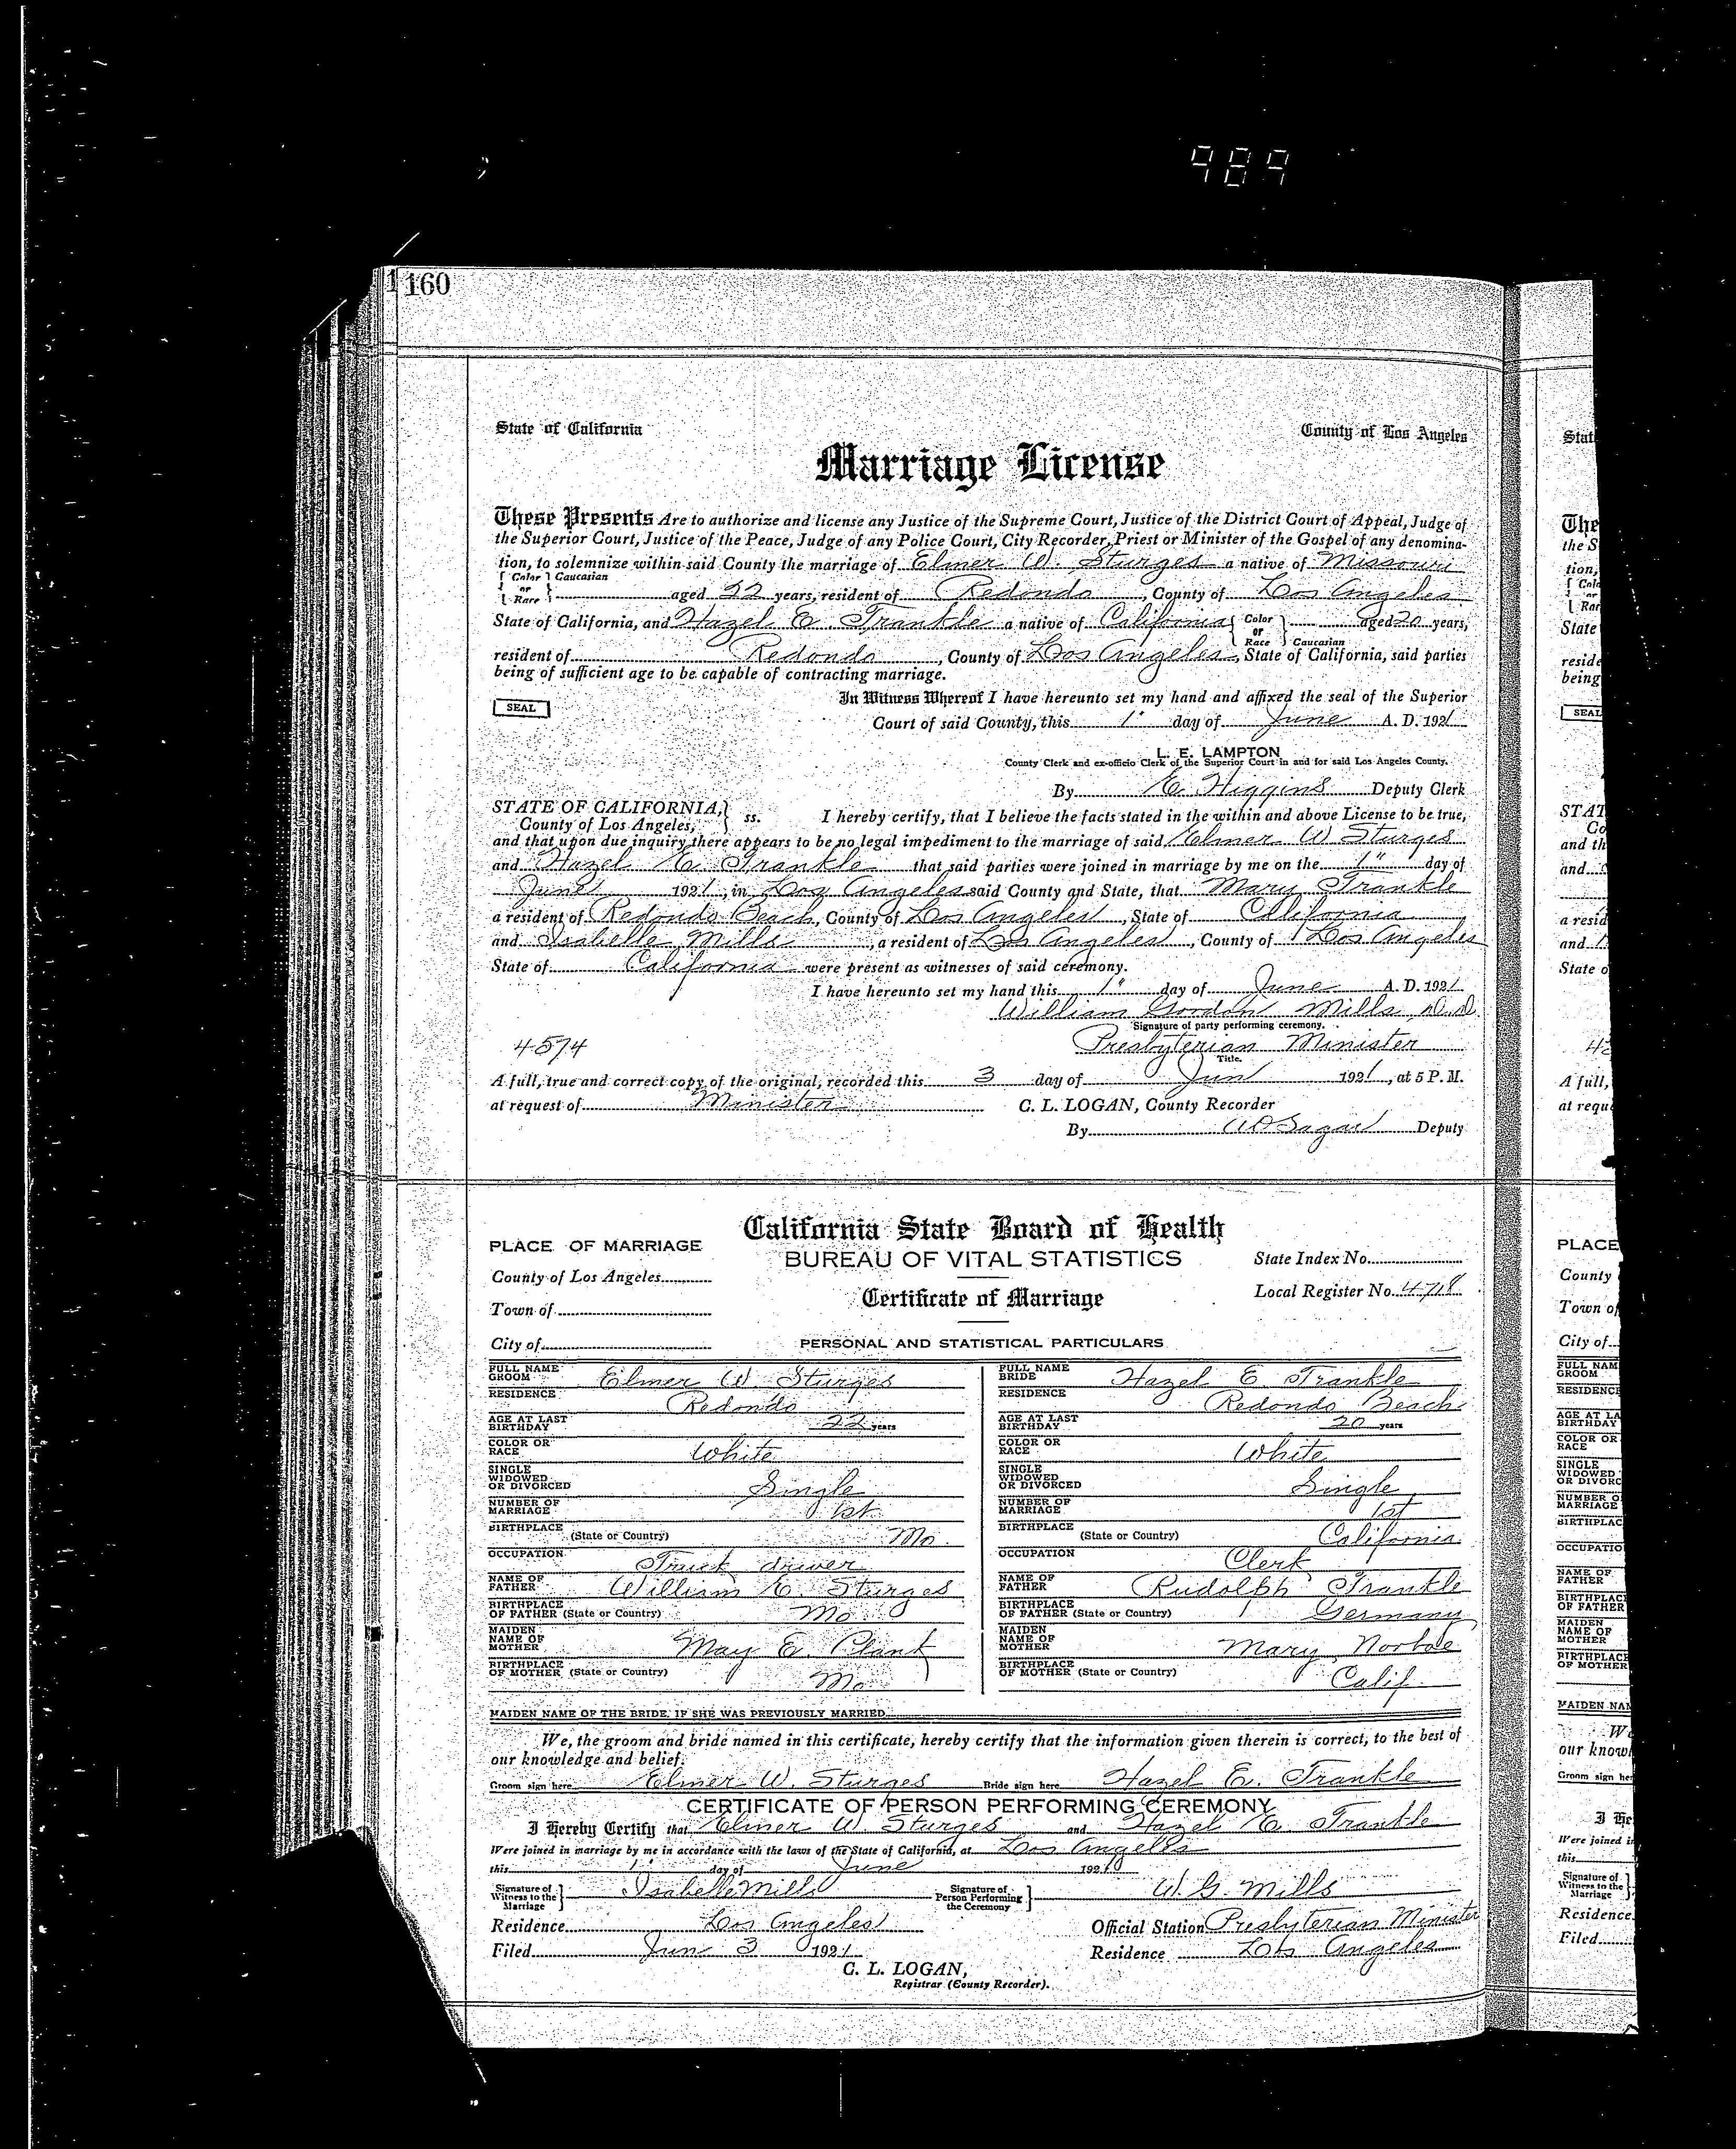 989
160
State of California County of Los Angeles
Marriage License
These Presents Are to authorize and license any Justice of the Supreme Court, Justice of the District Court of Appeal, Judge of
the Superior Court, Justice of the Peace, Judge of any Police Court, City Recorder, Priest or Minister of the Gospel of any denomina-
tion, to solemnize within said County the marriage of Elmer W. Sturges a native of Missouri
Color or Race Caucasian aged 22 years, resident of Redondo, County of Los Angeles
State of California, and Hazel E. Trankle a native of California Color or Race Caucasian aged 20 years,
resident of Redondo, County of Los Angeles, State of California, said parties
being of sufficient age to be capable of contracting marriage.
In Witness Whereof I have hereunto set my hand and affixed the seal of the Superior
SEAL
Court of said County, this 1" day of June A. D. 1921
L. E. LAMPTON
County Clerk and ex-officio Clerk of the Superior Court in and for said Los Angeles County.
By E. Higgins Deputy Clerk
STATE OF CALIFORNIA, County of Los Angeles, ss. I hereby certify, that I believe the facts stated in the within and above License to be true,
and that upon due inquiry there appears to be no legal impediment to the marriage of said Elmer W Sturges
and Hazel E. Trankle that said parties were joined in marriage by me on the 1" day of
June 1921, in Los Angeles said County and State, that Mary Trankle
a resident of Redondo Beach, County of Los Angeles, State of California
and Isabelle Mills, a resident of Los Angeles, County of Los Angeles
State of California were present as witnesses of said ceremony.
I have hereunto set my hand this 1" day of June A. D. 1921
William Gordon Mills, D.D.
Signature of party performing ceremony.
4574 Presbyterian Minister
Title.
A full, true and correct copy of the original, recorded this 3 day of Jun 1921, at 5 P. M.
at request of Minister C. L. LOGAN, County Recorder
By Deputy
California State Board of Health
PLACE OF MARRIAGE
BUREAU OF VITAL STATISTICS State Index No.
County of Los Angeles
Certificate of Marriage Local Register No. 4718
Town of
City of PERSONAL AND STATISTICAL PARTICULARS
FULL NAME GROOM Elmer W Sturges FULL NAME BRIDE Hazel E Trankle
RESIDENCE Redondo RESIDENCE Redondo Beach
AGE AT LAST BIRTHDAY 22 years AGE AT LAST BIRTHDAY 20 years
COLOR OR RACE White COLOR OR RACE White
SINGLE WIDOWED OR DIVORCED Single SINGLE WIDOWED OR DIVORCED Single
NUMBER OF MARRIAGE 1st NUMBER OF MARRIAGE 1st
BIRTHPLACE (State or Country) Mo BIRTHPLACE (State or Country) California
OCCUPATION Truck driver OCCUPATION Clerk
NAME OF FATHER William E. Sturges NAME OF FATHER Rudolph Trankle
BIRTHPLACE OF FATHER (State or Country) Mo BIRTHPLACE OF FATHER (State or Country) Germany
MAIDEN NAME OF MOTHER May E. Plant MAIDEN NAME OF MOTHER Mary
BIRTHPLACE OF MOTHER (State or Country) Mo BIRTHPLACE OF MOTHER (State or Country) Calif.
MAIDEN NAME OF THE BRIDE, IF SHE WAS PREVIOUSLY MARRIED
We, the groom and bride named in this certificate, hereby certify that the information given therein is correct, to the best of
our knowledge and belief.
Groom sign here Elmer W. Sturges Bride sign here Hazel E. Trankle
CERTIFICATE OF PERSON PERFORMING CEREMONY
I Hereby Certify that Elmer W Sturges and Hazel E. Trankle
Were joined in marriage by me in accordance with the laws of the State of California, at Los Angeles
this 1" day of June 1921
Signature of Witness to the Marriage Isabelle Mills Signature of Person Performing the Ceremony W. G. Mills
Residence Los Angeles Official Station Presbyterian Minister
Filed Jun 3 1921 Residence Los Angeles
C. L. LOGAN,
Registrar (County Recorder).